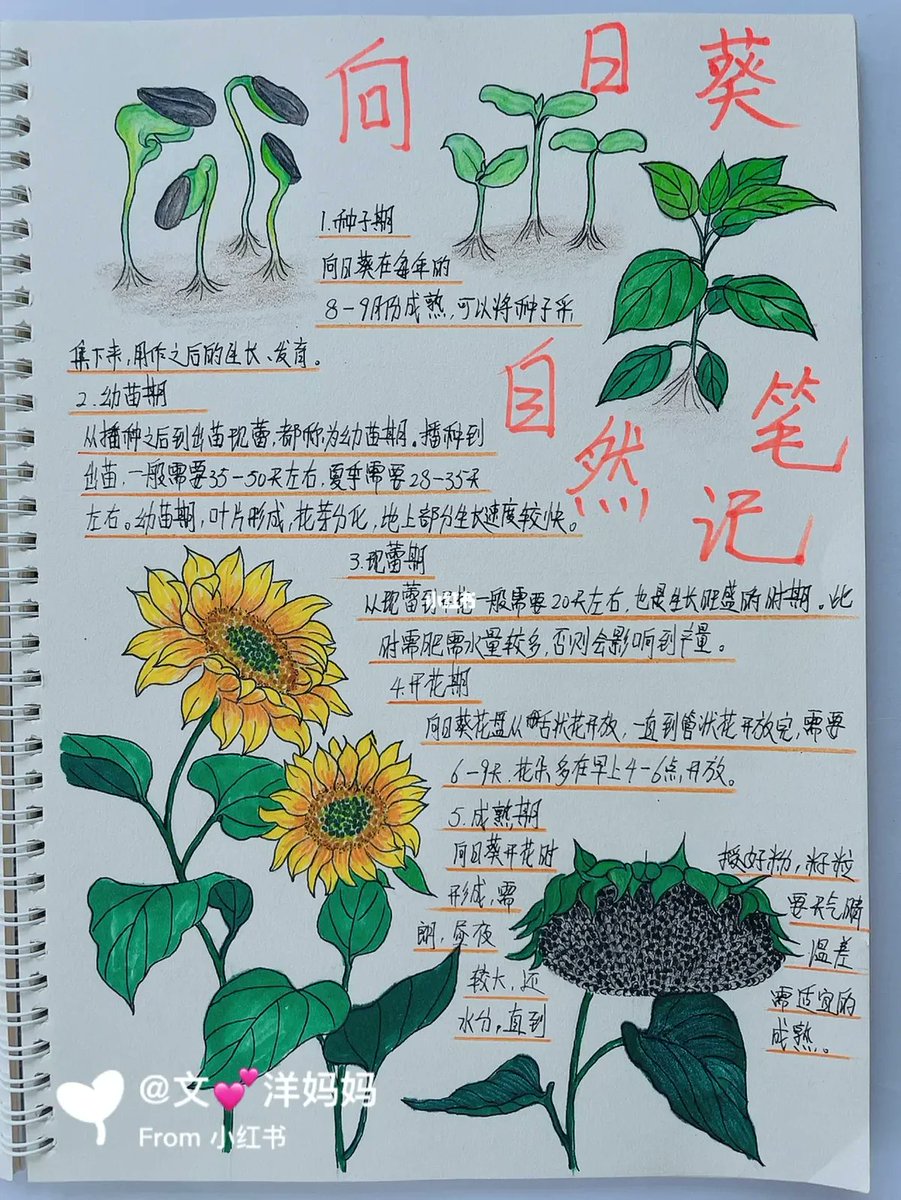 向日葵
1.种子期
向日葵在每年的
8-9月份成熟,可以将种子采
集下来,用作之后的生长、发育。
自然笔记
2.幼苗期
从播种之后到出苗现蕾,都称为幼苗期。播种到
出苗,一般需要35-50天左右,夏季需要28-35天
左右。幼苗期,叶片形成,花芽分化,地上部分生长速度较快。
3.现蕾期
从现蕾到 一般需要20天左右,也是生长旺盛的时期。此
小红书
时需肥需水量较多,否则会影响到产量。
4.开花期
向日葵花盘从舌状花开放,一直到管状花开放完,需要
6-9天,花朵多在早上4-6点开放。
5.成熟期
向日葵开花时 授好粉,籽粒
形成,需 要天气晴
朗,昼夜 温差
较大,还 需适宜的
水分,直到 成熟。
@文💕洋妈妈
From 小红书